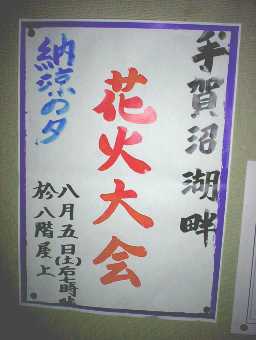 手賀沼湖畔
花火大会
納涼の夕
八月五日(土)后七時
八階屋上